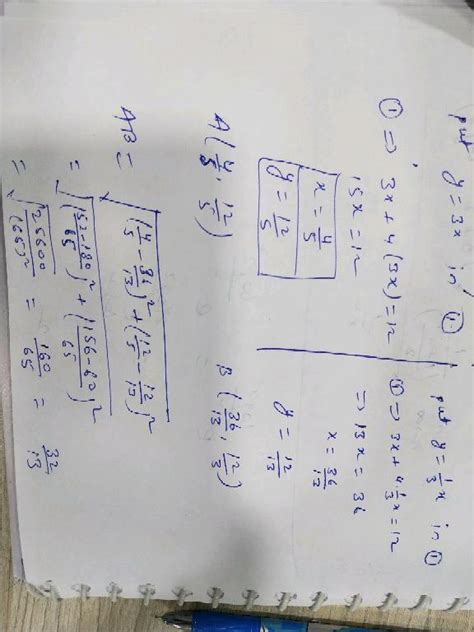 put y = 3x in ①
① ⇒ 3x + 4(3x) = 12
15x = 12
x = 4/5
y = 12/5
put y = 1/3 x in ①
① ⇒ 3x + 4·1/3 x = 12
⇒ 13x = 36
x = 36/13
y = 12/13
A(4/5, 12/5) B(36/13, 12/13)
AB = √((4/5 - 36/13)² + (12/5 - 12/13)²)
= √((52-180/65)² + (156-60/65)²)
= √(25600/(65)²) = 160/65 = 32/13